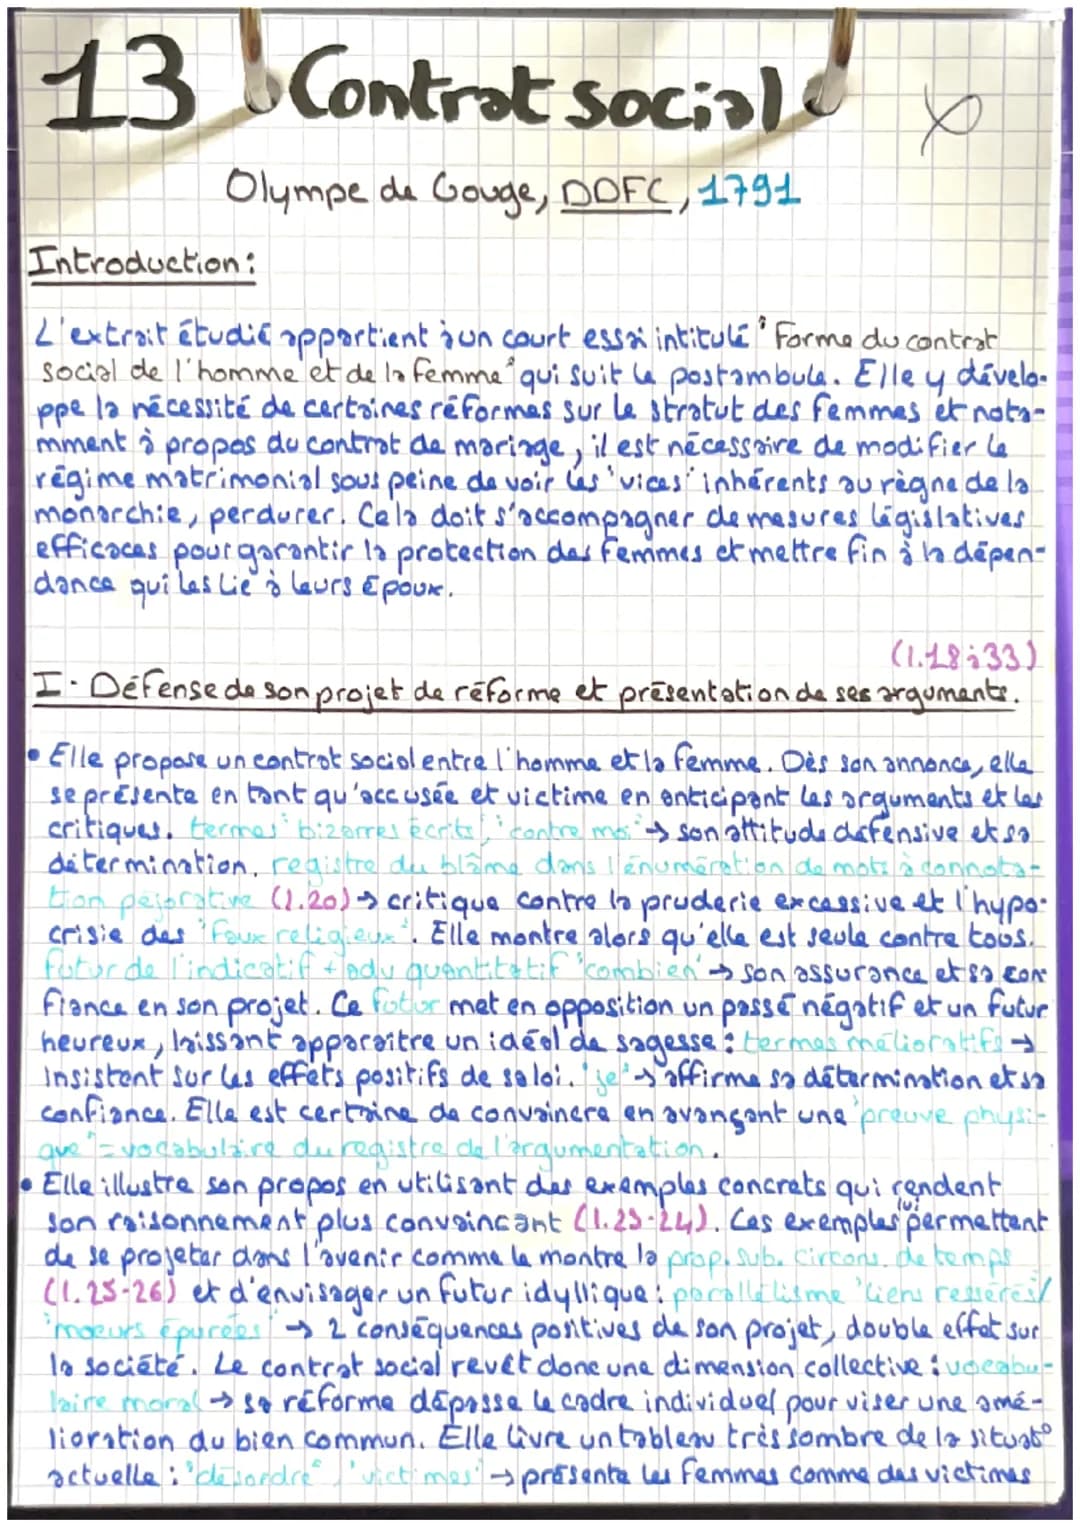 13 Contrat social
Olympe de Gouge, DDFC, 1791
Introduction:
L'extrait étudié appartient à un court essai intitulé "Forme du contrat
social de l'homme et de la femme" qui suit le postambule. Elle y dévelo-
ppe la nécessité de certaines réformes sur le stratut des femmes et nota-
mment à propos du contrat de mariage, il est nécessaire de modifier le
régime matrimonial sous peine de voir les "vices" inhérents au règne de la
monarchie, perdurer. Cela doit s'accompagner de mesures législatives
efficaces pour garantir la protection des femmes et mettre fin à la dépen-
dance qui les lie à leurs époux.
(l.18 à 33)
I- Défense de son projet de réforme et présentation de ses arguments.
• Elle propose un contrat social entre l'homme et la femme. Dès son annonce, elle
se présente en tant qu'accusée et victime en anticipant les arguments et les
critiques. termes "bizarres écrits", "contre moi" → son attitude défensive et sa
détermination. registre du blâme dans l'énumération de mots à connota-
tion péjorative (l.20) → critique contre la pruderie excessive et l'hypo-
crisie des "faux religieux". Elle montre alors qu'elle est seule contre tous.
futur de l'indicatif + adv quantitatif "combien" → son assurance et sa con
fiance en son projet. Ce futur met en opposition un passé négatif et un futur
heureux, laissant apparaître un idéal de sagesse : termes mélioratifs →
insistent sur les effets positifs de sa loi. "je" → affirme sa détermination et sa
confiance. Elle est certaine de convaincre en avançant une "preuve physi-
que" = vocabulaire du registre de l'argumentation.
• Elle illustre son propos en utilisant des exemples concrets qui rendent
son raisonnement plus convaincant (l.23-24). Ces exemples lui permettent
de se projeter dans l'avenir comme le montre la prop. sub. circons. de temps
(l.25-26) et d'envisager un futur idyllique : parallélisme "liens resserés/
"moeurs épurées" → 2 conséquences positives de son projet, double effet sur
la société. Le contrat social revêt donc une dimension collective : vocabu-
laire moral → sa réforme dépasse le cadre individuel pour viser une amé-
lioration du bien commun. Elle livre un tableau très sombre de la situat°
actuelle : "désordre", "victimes" → présente les femmes comme des victimes